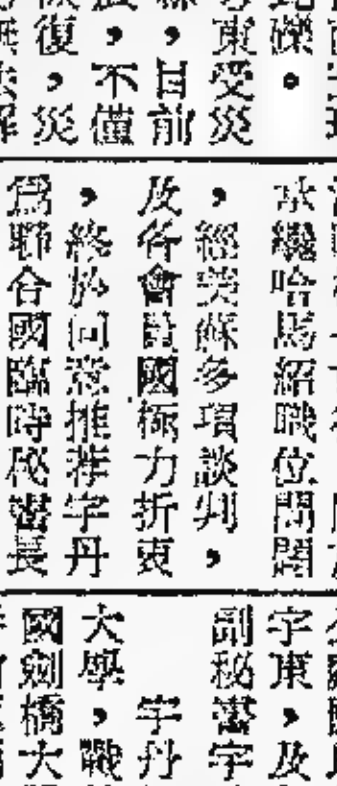 礫。
東受災
，目前
，不僅
復，災
承繼哈馬紹職位問題
，經美蘇多項談判，
及各會員國極力折衷
，終於同意推荐宇丹
爲聯合國臨時秘書長
宇東，及
副秘書宇
宇丹
大學，戰
國劍橋大